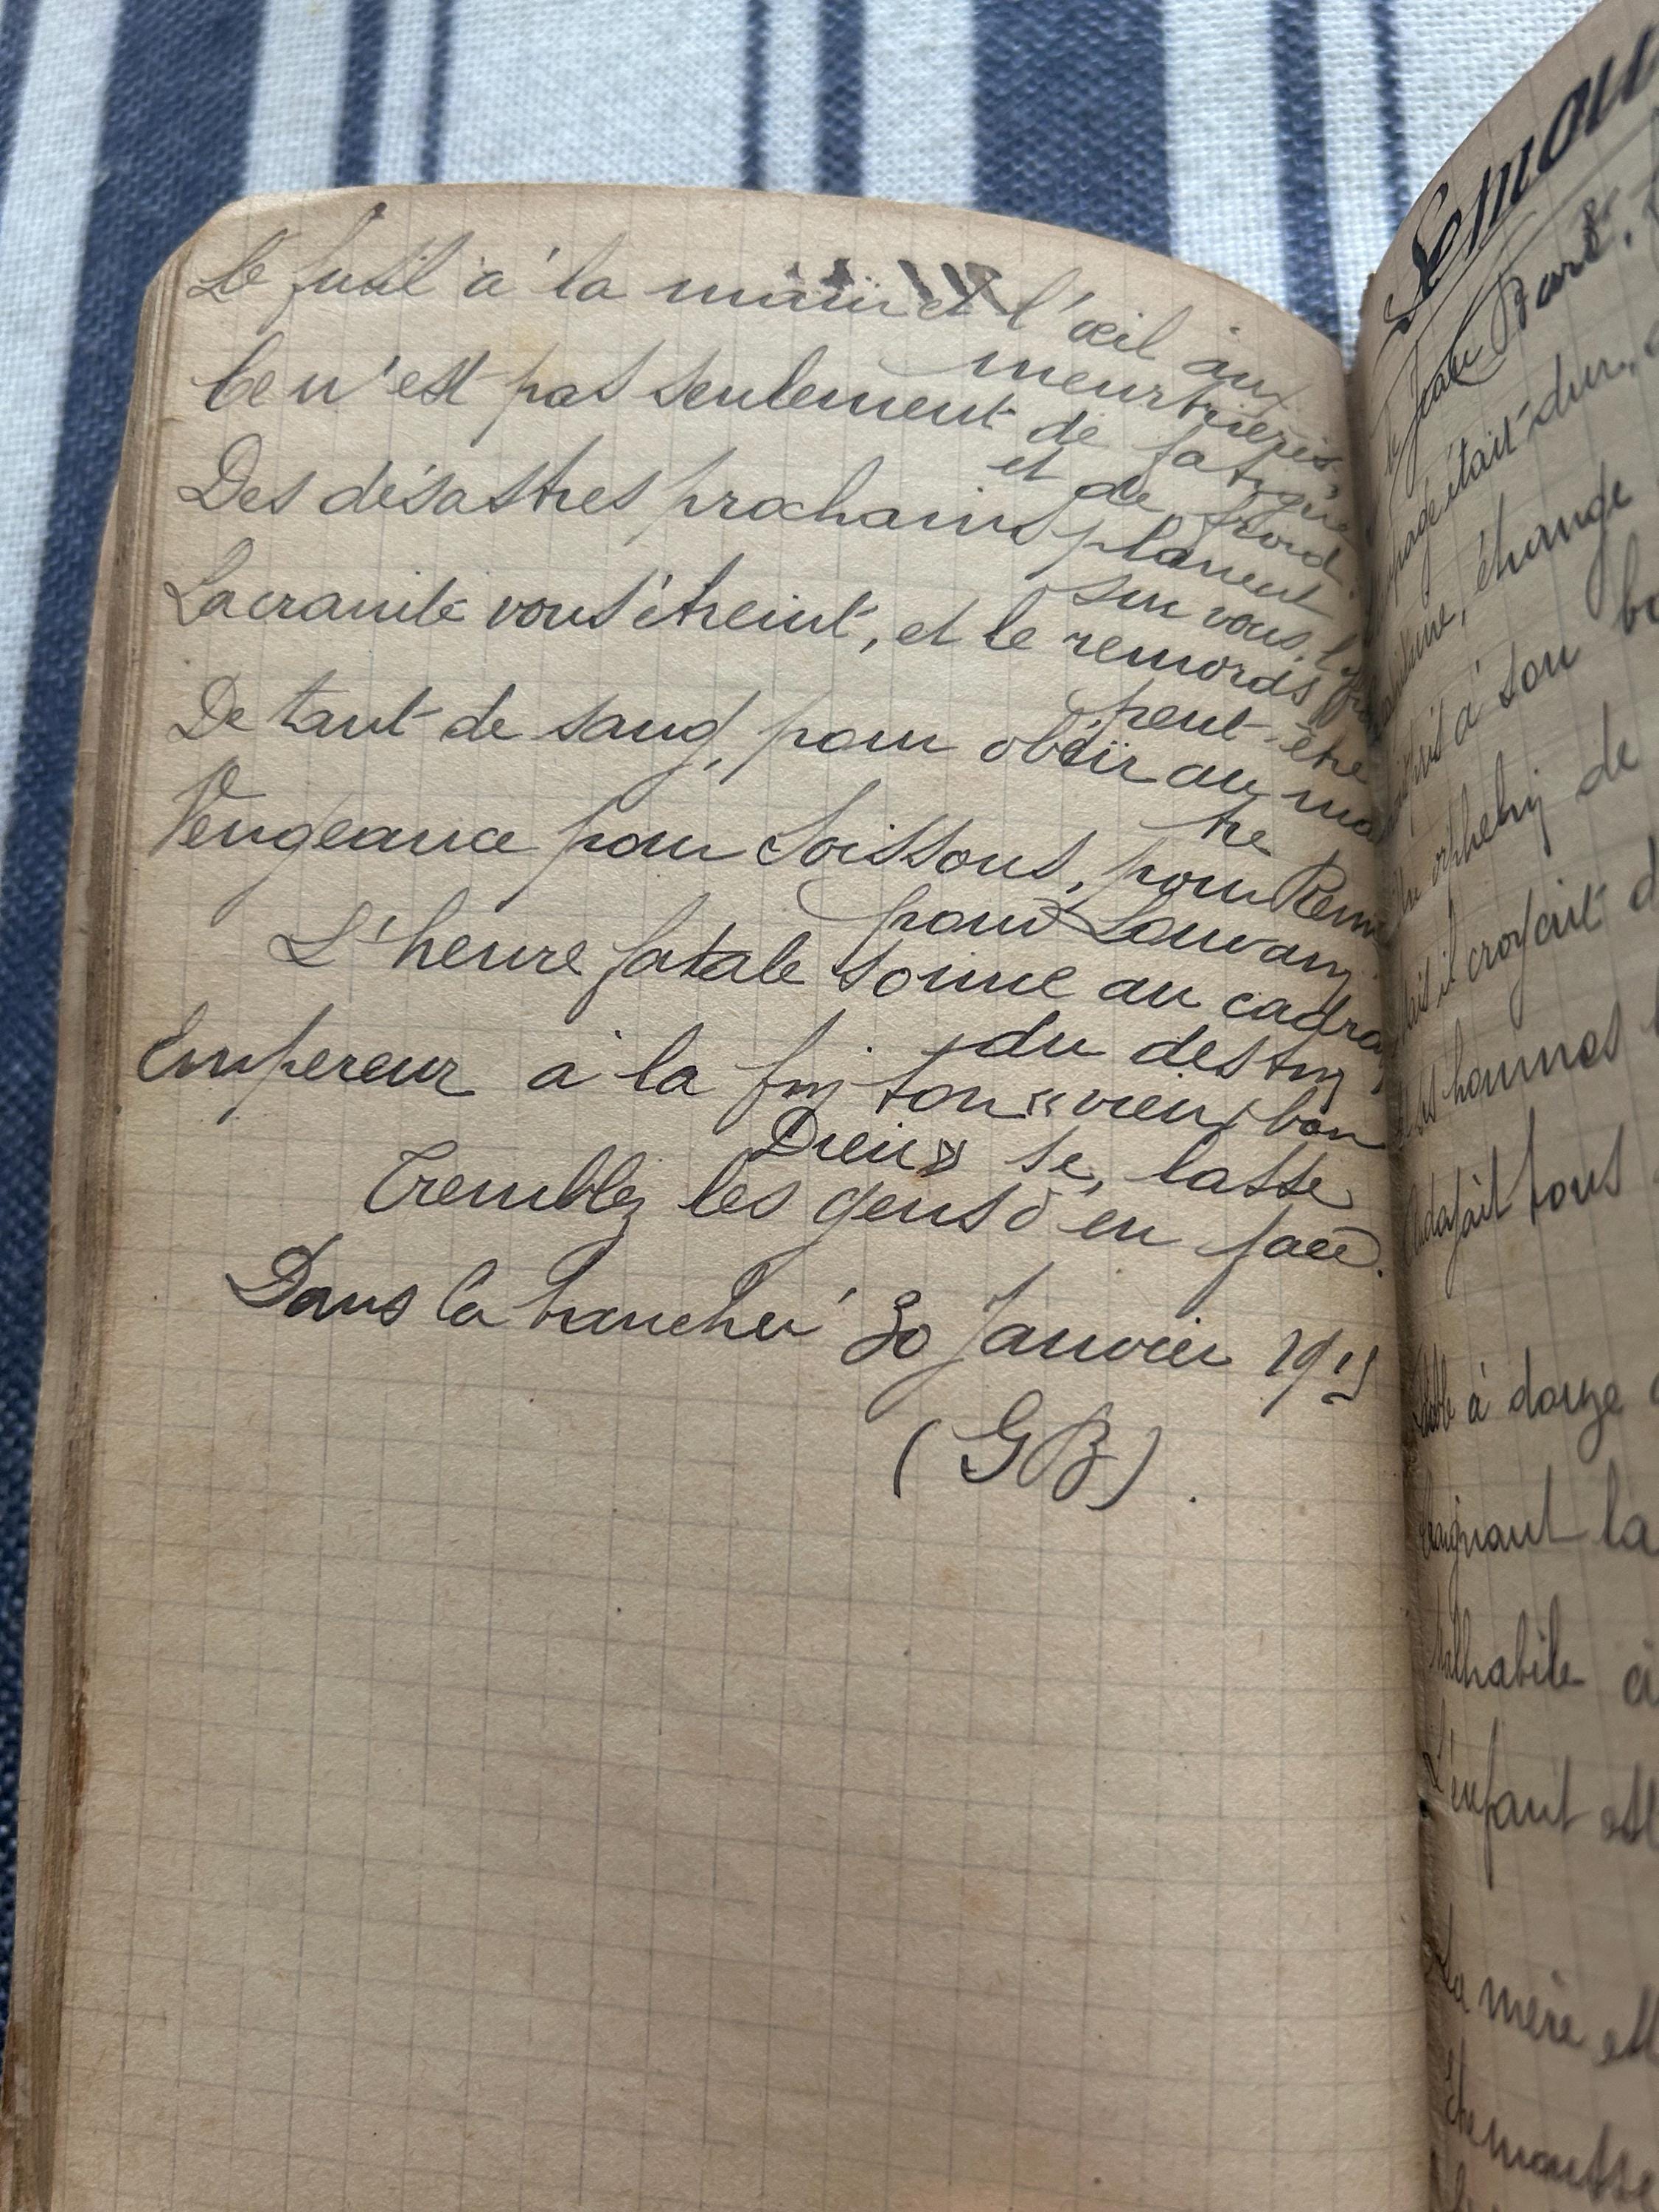 Le fusil à la main et l'œil aux
meurtrières
Ce n'est pas seulement de fatigue
et de froid.
Des désastres prochains planent
sur vous, l'
La crainte vous étreint, et le remords
peut-être
De tant de sang, pour obéir au maî
tre
Vengeance pour Soissons, pour Reims
pour Louvain
L'heure fatale sonne au cadran
du destin
Empereur à la fin ton "vieux bon
Dieu" se lasse
Tremblez les gens d'en face.
Dans la tranchée 30 Janvier 1915
(GB).
Semou
Jean Bart.
était dur,
étrange
à son
orphelin de
il croyait
hommes
tous
à douze
la
malhabile
L'enfant est
La mère est
mousse